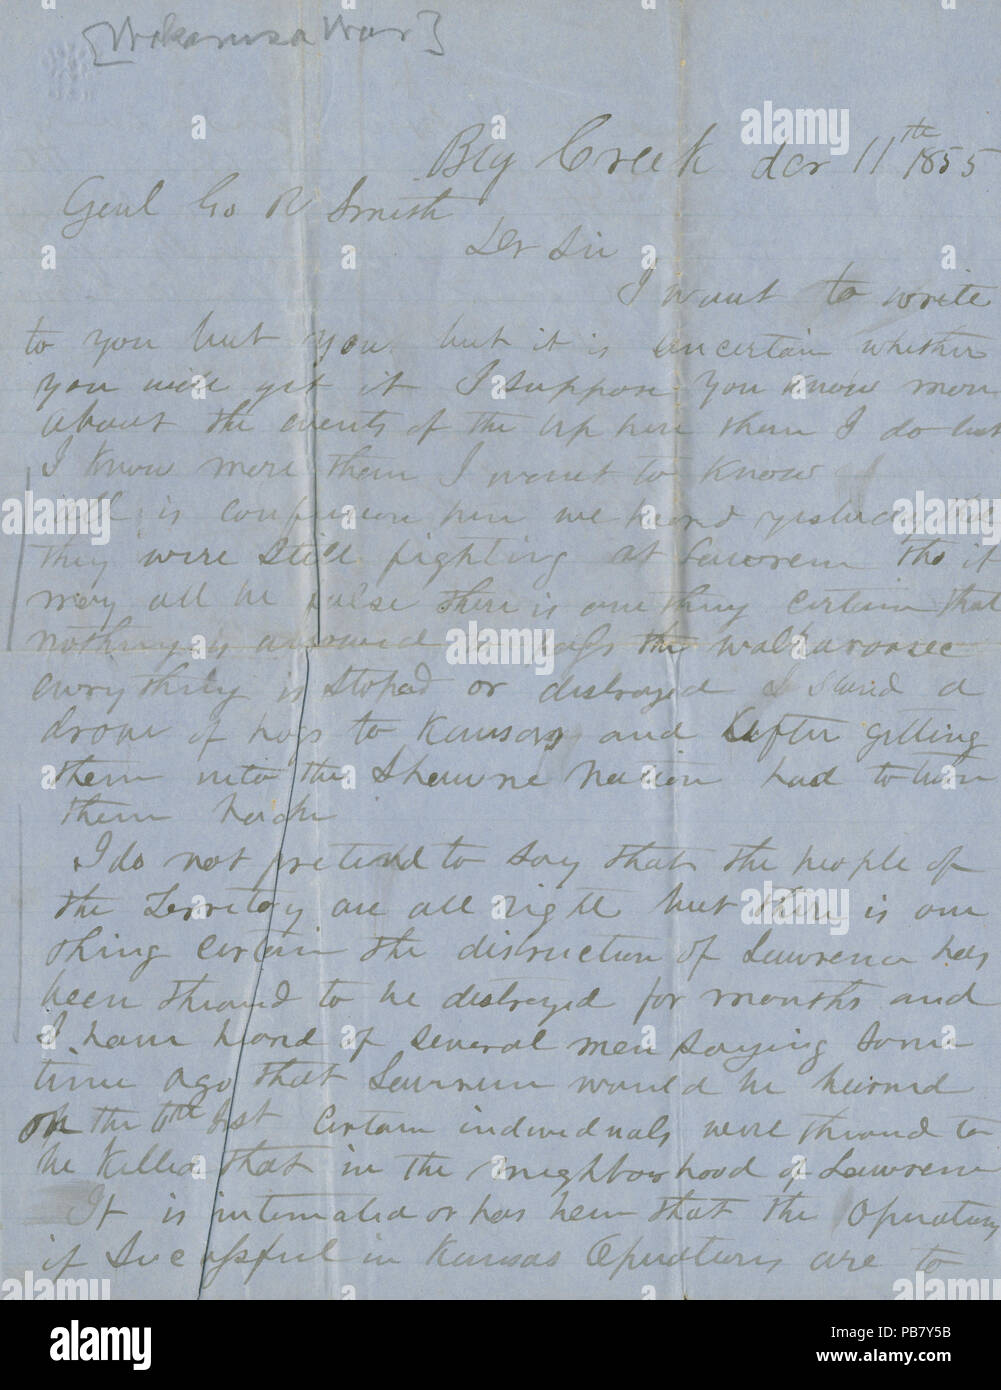 [Wakarusa War]
Big Creek dcr 11th 1855
Genl Go R Smith
Dr Sir
I want to write
to you but you but it is uncertain whether
you will git it I suppose you know more
about the events of the up here then I do but
I know more then I want to know
all is confusion here we heard yesterday that
they were still fighting at Lawrence tho it
may all be false there is one thing certain that
nothing is allowed to pass the walkaroosee
everything is stoped or distroyed I started a
drove of hogs to Kansas and after gitting
them into the Shawne Nation had to turn
them back
I do not pretend to say that the people of
the Territory are all right but there is one
thing certain the distruction of Lawrence has
been thread to be distroyed for months and
I have heard of several men saying some
time ago that Lawrence would be burned
on the 6th Inst Certain individuals were thread to
be killed that in the neighborhood of Lawrence
It is intimated or has been that the Operations
if Sucessful in Kansas Opurations are to
alamy stock photo
alamy
a
Image ID: PB7Y5B
www.alamy.com